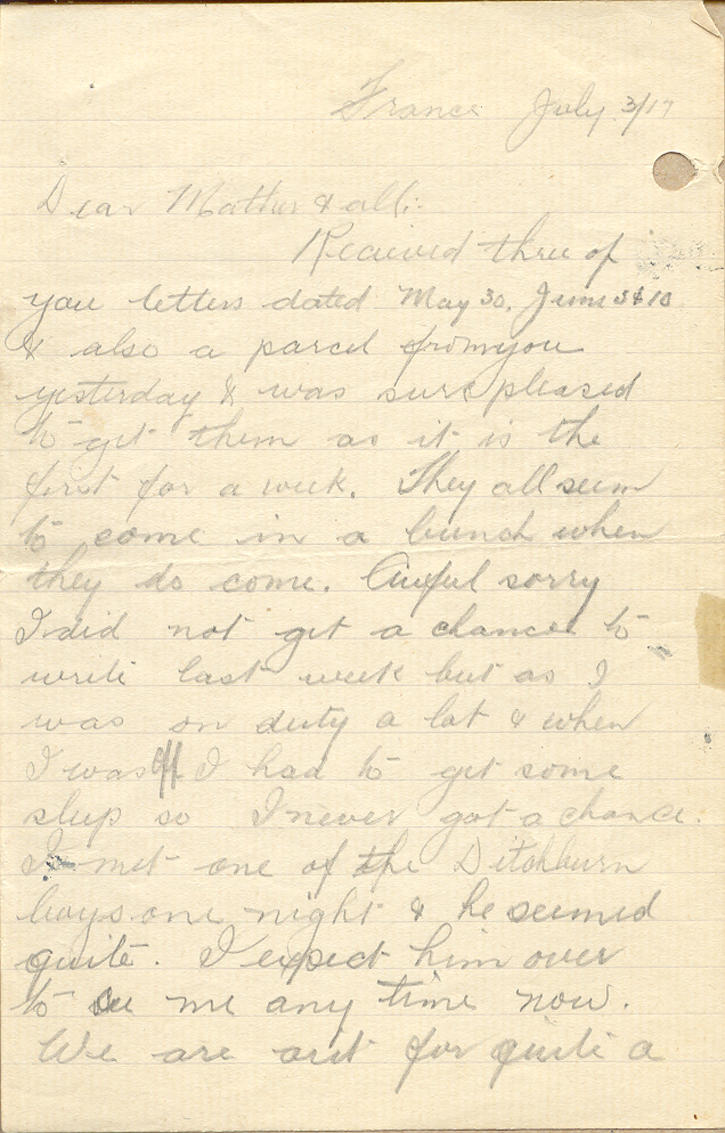 France July 3/17
Dear Mother & all:-
Recieved three of
you letters dated May 30, June 3 & 10
& also a parcel from you
yesterday & was sure pleased
to get them as it is the
first for a week. They all seem
to come in a bunch when
they do come. Awful sorry
I did not get a chance to
write last week but as I
was on duty a lot & when
I was off I had to get some
sleep so I never got a chance.
I met one of the Ditchburn
boys one night & he seemed
quite. I expect him over
to see me any time now.
We are out for quite a